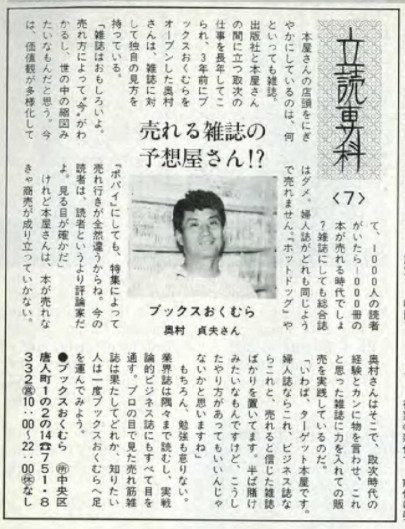 立読専科
〈7〉
売れる雑誌の
予想屋さん!?
本屋さんの店頭をにぎ
やかにしているのは、何
といっても雑誌。
出版社と本屋さん
の間に立つ取次の
仕事を長年してこ
られ、3年前にブ
ックスおくむらを
オープンした奥村
さんは、雑誌に対
して独自の見方を
持っている。
「雑誌はおもしろいよ。
売れ方によって〝今〟がわ
かるし、世の中の縮図み
たいなもんだと思う。今
は、価値観が多様化して
て、1000人の読者
がいたら1000冊の
本が売れる時代でしょ
?雑誌にしても総合誌
はダメ、婦人誌がどれも同じよう
で売れません。『ホットドッグ』や
『ポパイ』にしても、特集によって
売れ行きが全然違うからね。今の
読者は、読者というより評論家だ
よ。見る目が確かだ」
けれど本屋さんは、本が売れな
きゃ商売が成り立っていかない。
ブックスおくむら
奥村 貞夫さん
奥村さんはそこで、取次時代の
経験とカンに物を言わせ、これ
と思った雑誌に力を入れての販
売を実践しているのだ。
「いわば、ターゲット本屋です。
婦人誌ならこれ、ビジネス誌な
らこれと、売れると信じた雑誌
ばかりを置いてます。半ば賭け
みたいなもんですけど、こうし
たやり方があってもいいんじゃ
ないかと思いますね」
もちろん、勉強も怠りない。
業界誌は隅々まで読むし、実戦
論的ビジネス誌にもすべて目を
通す。プロの目で見た売れ筋雑
誌は果たしてどれか、知りたい
人は一度ブックスおくむらへ足
を運んでみよう。
●ブックスおくむら ㊟中央区
唐人町1の2の14☎751・8
332㊠10:00〜22:00㊡なし